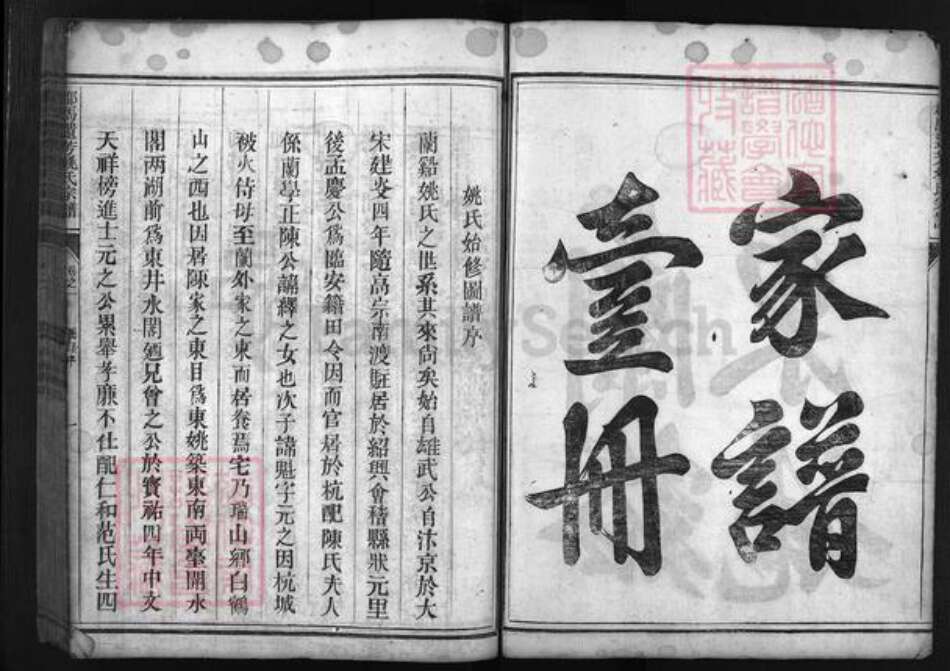 家譜
壹冊
姚氏始修圖譜序
蘭谿姚氏之世系其來尚矣始自雄武公自汴京於大
宋建炎四年隨高宗南渡駐居於紹興會稽縣狀元里
後孟慶公爲臨安籍田令因而官居於杭配陳氏夫人
係蘭學正陳公諱繹之女也次子諱魁字元之因杭城
被火侍母至蘭外家之東而居養焉宅乃瑞山鄉白鶴
山之西也因居陳家之東目爲東姚築東南両臺開水
閣两湖前爲東井水閣廼兄曾之公於寶祐四年中文
天祥榜進士元之公累舉孝廉不仕配仁和范氏生四